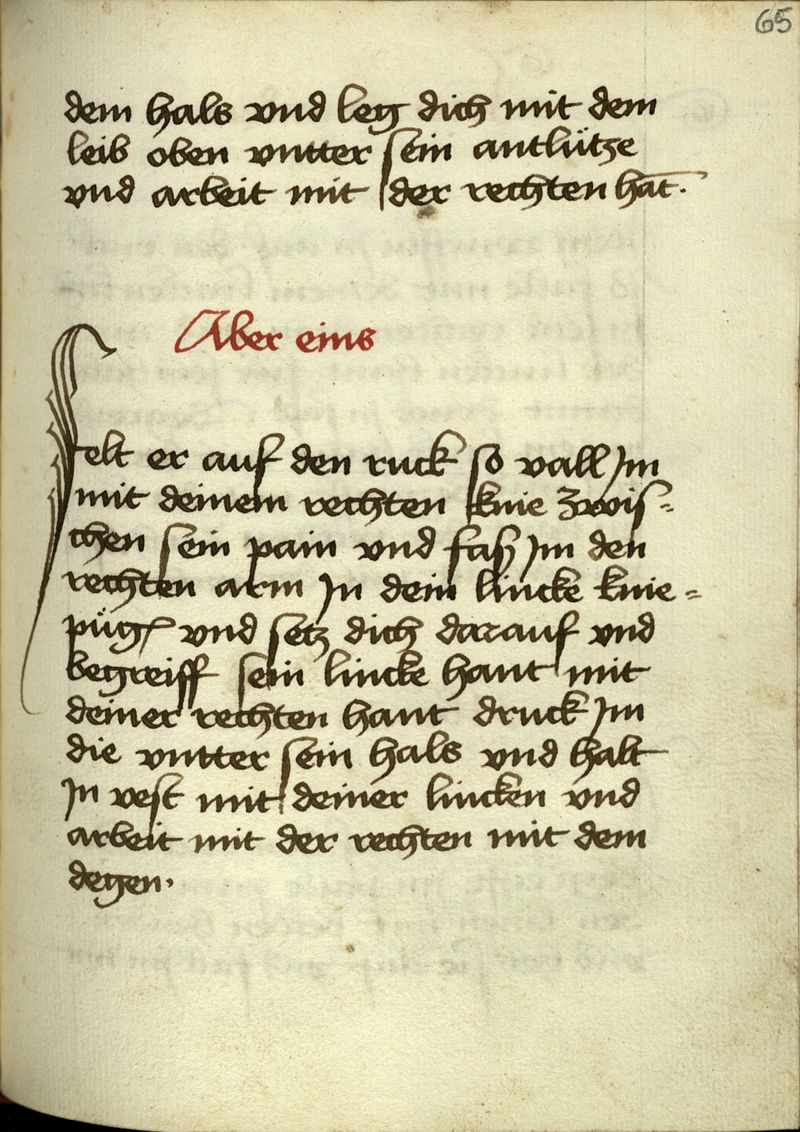 65
dem hals vnd leg dich mit dem
leib oben vntter sein antlütze
vnd arbeit mit der rechten hāt.
Aber eins
Felt er auf den ruck so vall Im
mit deinem rechten knie zwis=
chen sein pain vnd fasz Im den
rechten arm In dein lincke knie=
püg vnd setz dich darauf vnd
begreiff sein lincke hant mit
deiner rechten hant druck Im
die vntter sein hals vnd halt
In vest mit deiner lincken vnd
arbeit mit der rechten mit dem
degen.